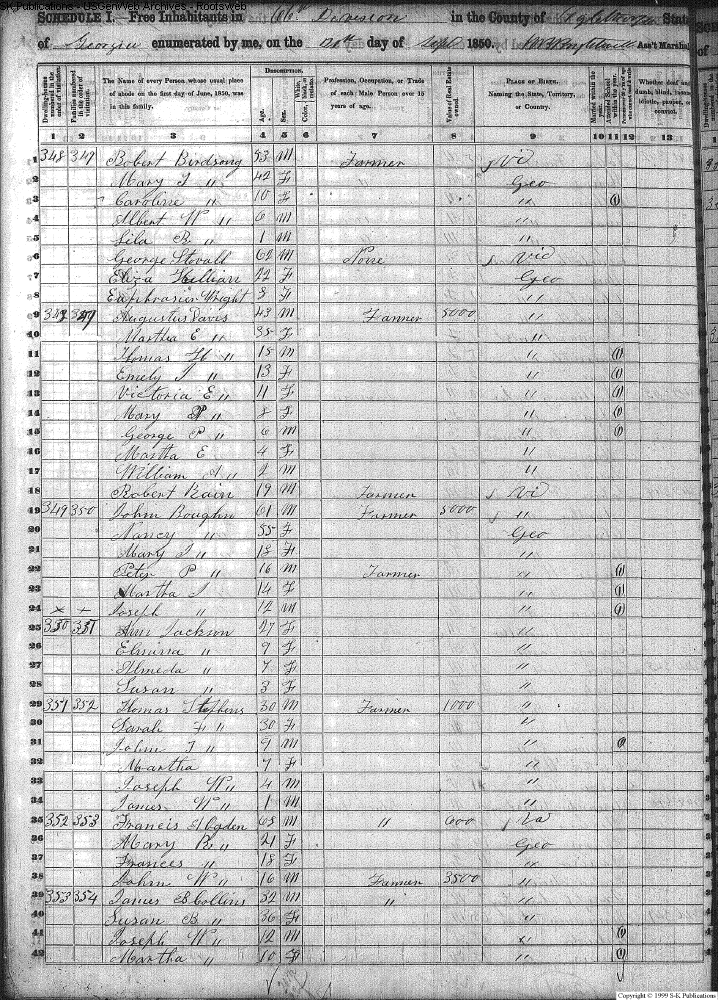 S-K Publications - USGenWeb Archives - Rootsweb
SCHEDULE I.—Free Inhabitants in 66th Division in the County of State
of Georgia enumerated by me, on the 12th day of Sept 1850. Ass't Marshal
Dwelling-houses numbered in the order of visitation.
Families numbered in the order of visitation.
The Name of every Person whose usual place of abode on the first day of June, 1850, was in this family.
Description.
Age.
Sex.
White, black, or mulatto.
Color,
Profession, Occupation, or Trade of each Male Person over 15 years of age.
Value of Real Estate owned.
Place of Birth. Naming the State, Territory, or Country.
Married within the year.
Attended School within the year.
Whether deaf and dumb, blind, insane, idiotic, pauper, or convict.
1 2 3 4 5 6 7 8 9 10 11 12 13
1 348 349 Robert Birdsong 53 M Farmer Vi
2 Mary J " 42 F Geo
3 Caroline " 10 F " (1)
4 Albert W " 6 M "
5 Lila B " 1 M "
6 George Stovall 62 M None Via
7 Eliza Killian 22 F Geo
8 Wright 3 F "
9 Augustus Davis 43 M Farmer 5000 "
10 Martha E " 35 F "
11 Thomas H " 15 M " (1)
12 Emely J " 13 F " (1)
13 Victoria E " 11 F " (1)
14 Mary " 8 F " (1)
15 George P " 6 M " (1)
16 Martha E 4 F "
17 William A " 2 M "
18 Robert 19 M Farmer Vi
19 349 350 John Boughn 61 M Farmer 5000 "
20 Nancy " 55 F Geo
21 Mary J " 18 F "
22 Peter P " 16 M Farmer " (1)
23 Martha J 14 F " (1)
24 x + Joseph " 12 M " (1)
25 350 351 Ann Jackson 27 F "
26 Elmina " 9 F "
27 Almeda " 7 F "
28 Susan " 3 F "
29 351 352 Thomas Stephens 30 M Farmer 1000 "
30 Sarah F " 30 F "
31 John T " 9 M " (1)
32 Martha 7 F "
33 Joseph W " 4 M "
34 James W " 1 M "
35 352 353 Francis Ogden 65 M " 600 Va
36 Mary B " 21 F Geo
37 Frances " 18 F "
38 John W " 16 M Farmer 3500 "
39 353 354 James B Collins 32 M " "
40 Susan B " 36 F "
41 Joseph W " 12 M " (1)
42 Martha " 10 F " (1)
Copyright © 1999 S-K Publications